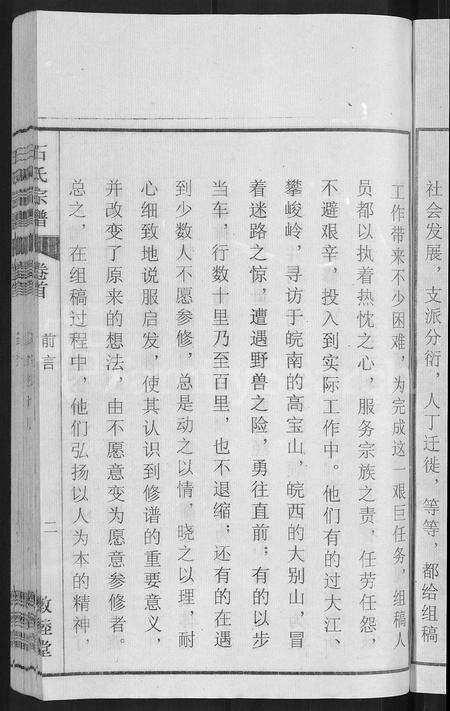 社会发展，支派分衍，人丁迁徙，等等，都给组稿
工作带来不少困难，为完成这一艰巨任务，组稿人
员都以执着热忱之心，服务宗族之责，任劳任怨，
不避艰辛，投入到实际工作中。他们有的过大江、
攀峻岭，寻访于皖南的高宝山，皖西的大别山，冒
着迷路之惊，遭遇野兽之险，勇往直前；有的以步
当车，行数十里乃至百里，也不退缩；还有的在遇
到少数人不愿参修，总是动之以情，晓之以理，耐
心细致地说服启发，使其认识到修谱的重要意义，
并改变了原来的想法，由不愿意变为愿意参修者。
总之，在组稿过程中，他们弘扬以人为本的精神，
石氏宗谱
卷首
前言
二
敦睦堂